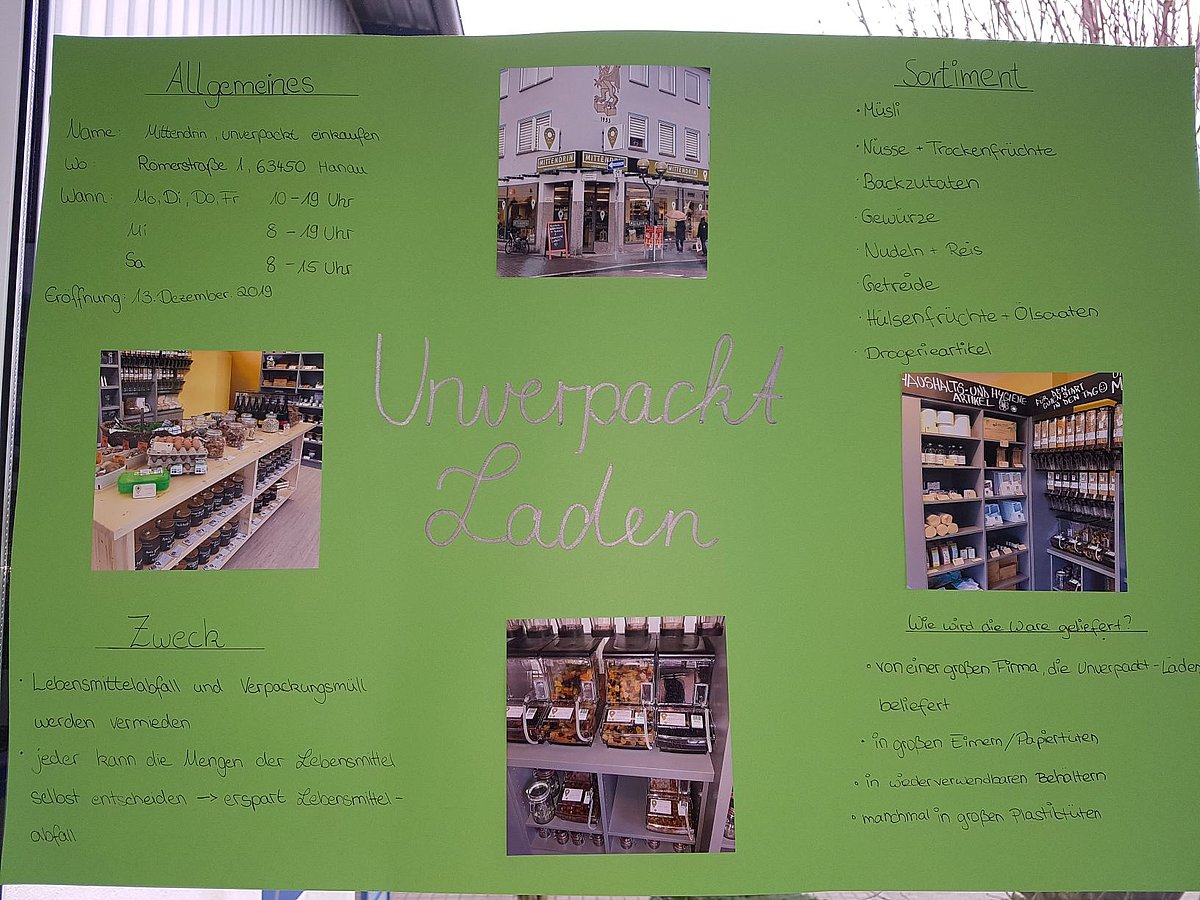 Allgemeines
Name: Mittendrin, unverpackt einkaufen
Wo: Römerstraße 1, 63450 Hanau
Wann: Mo, Di, Do, Fr 10-19 Uhr
Mi 8-19 Uhr
Sa 8-15 Uhr
Eröffnung: 13. Dezember 2019
1953
MITTENDRIN
MITTENDRIN
MITTENDRIN
Sortiment
· Müsli
· Nüsse + Trockenfrüchte
· Backzutaten
· Gewürze
· Nudeln + Reis
· Getreide
· Hülsenfrüchte + Ölsaaten
· Drogerieartikel
Unverpackt
Laden
HAUSHALTS- UND HYGIENE
ARTIKEL
FÜR DEN
GUTEN START
IN DEN TAG
Zweck
· Lebensmittelabfall und Verpackungsmüll
werden vermieden
· jeder kann die Mengen der Lebensmittel
selbst entscheiden → erspart Lebensmittel-
abfall
Wie wird die Ware geliefert?
· von einer großen Firma, die Unverpackt-Läden
beliefert
· in großen Eimern/Papiertüten
· in wiederverwendbaren Behältern
· manchmal in großen Plastiktüten